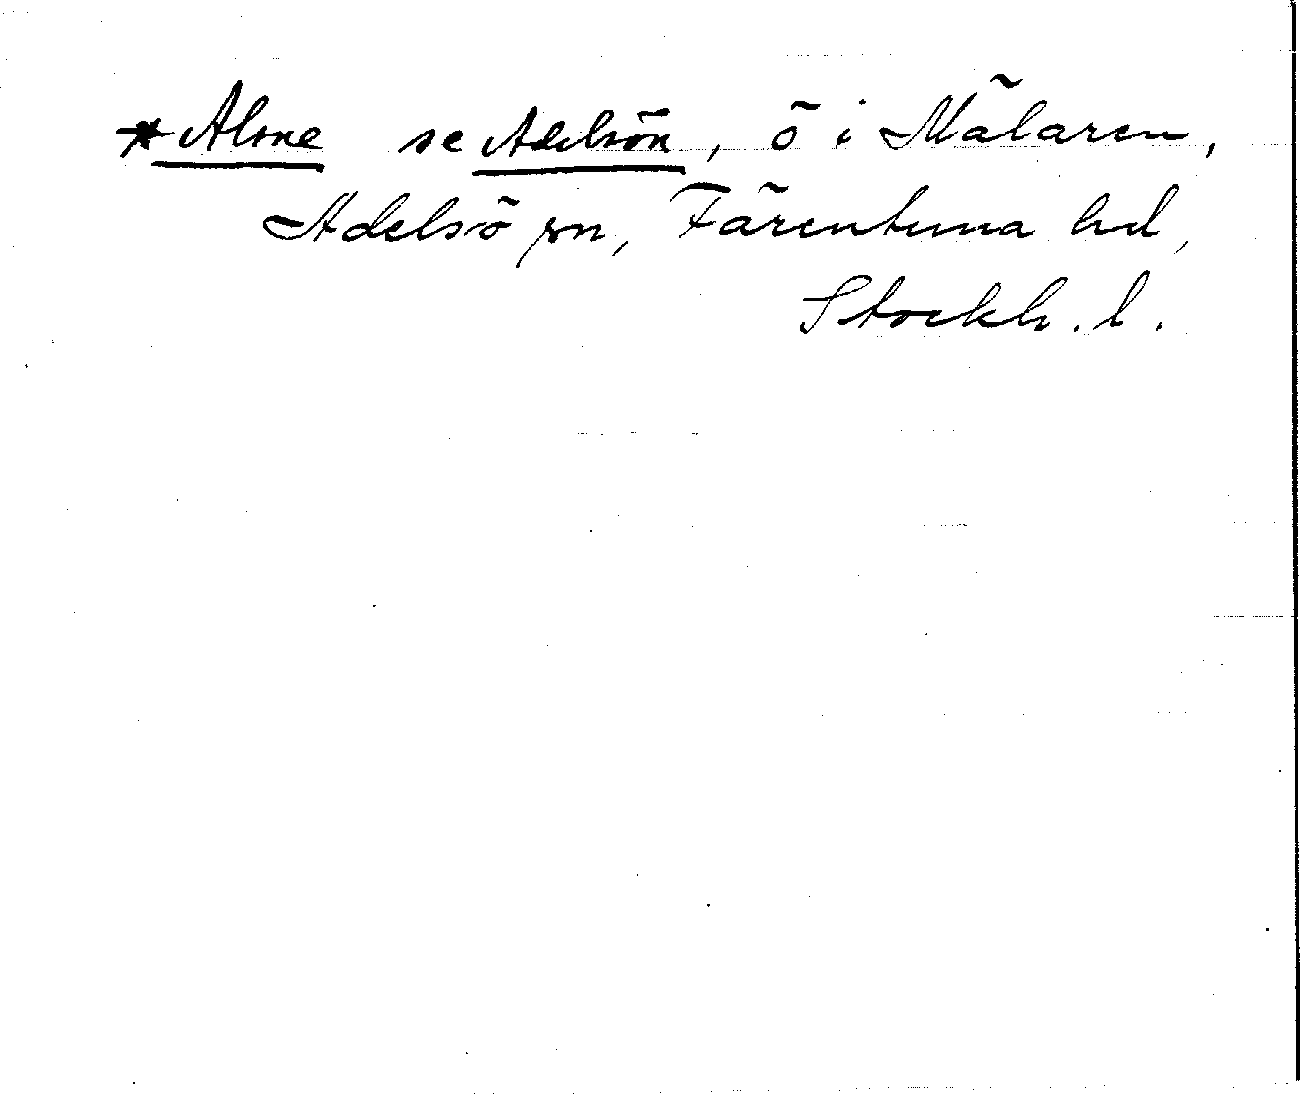 *Alsne se Adelsön, ö i Mälaren,
Adelsö sn, Färentuna hd,
Stockh. l.